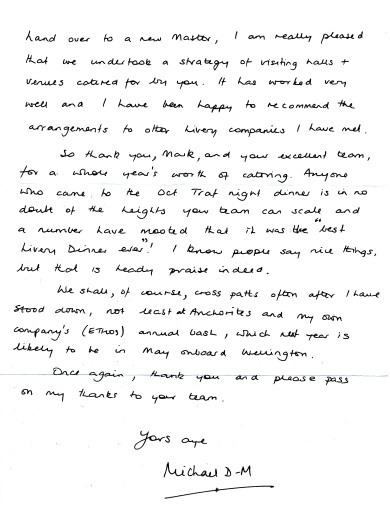 hand over to a new Master, I am really pleased
that we undertook a strategy of visiting halls +
venues catered for by you. It has worked very
well and I have been happy to recommend the
arrangements to other Livery companies I have met.
So thank you, Mark, and your excellent team,
for a whole year's worth of catering. Anyone
who came to the Oct Traf night dinner is in no
doubt of the heights your team can scale and
a number have mooted that it was the "best
Livery Dinner ever"! I know people say nice things,
but that is heady praise indeed.
We shall, of course, cross paths often after I have
stood down, not least at Anchorites and my own
company's (ETHOS) annual bash, which next year is
likely to be in May onboard Wellington.
Once again, thank you and please pass
on my thanks to your team.
Yours aye
Michael D-M